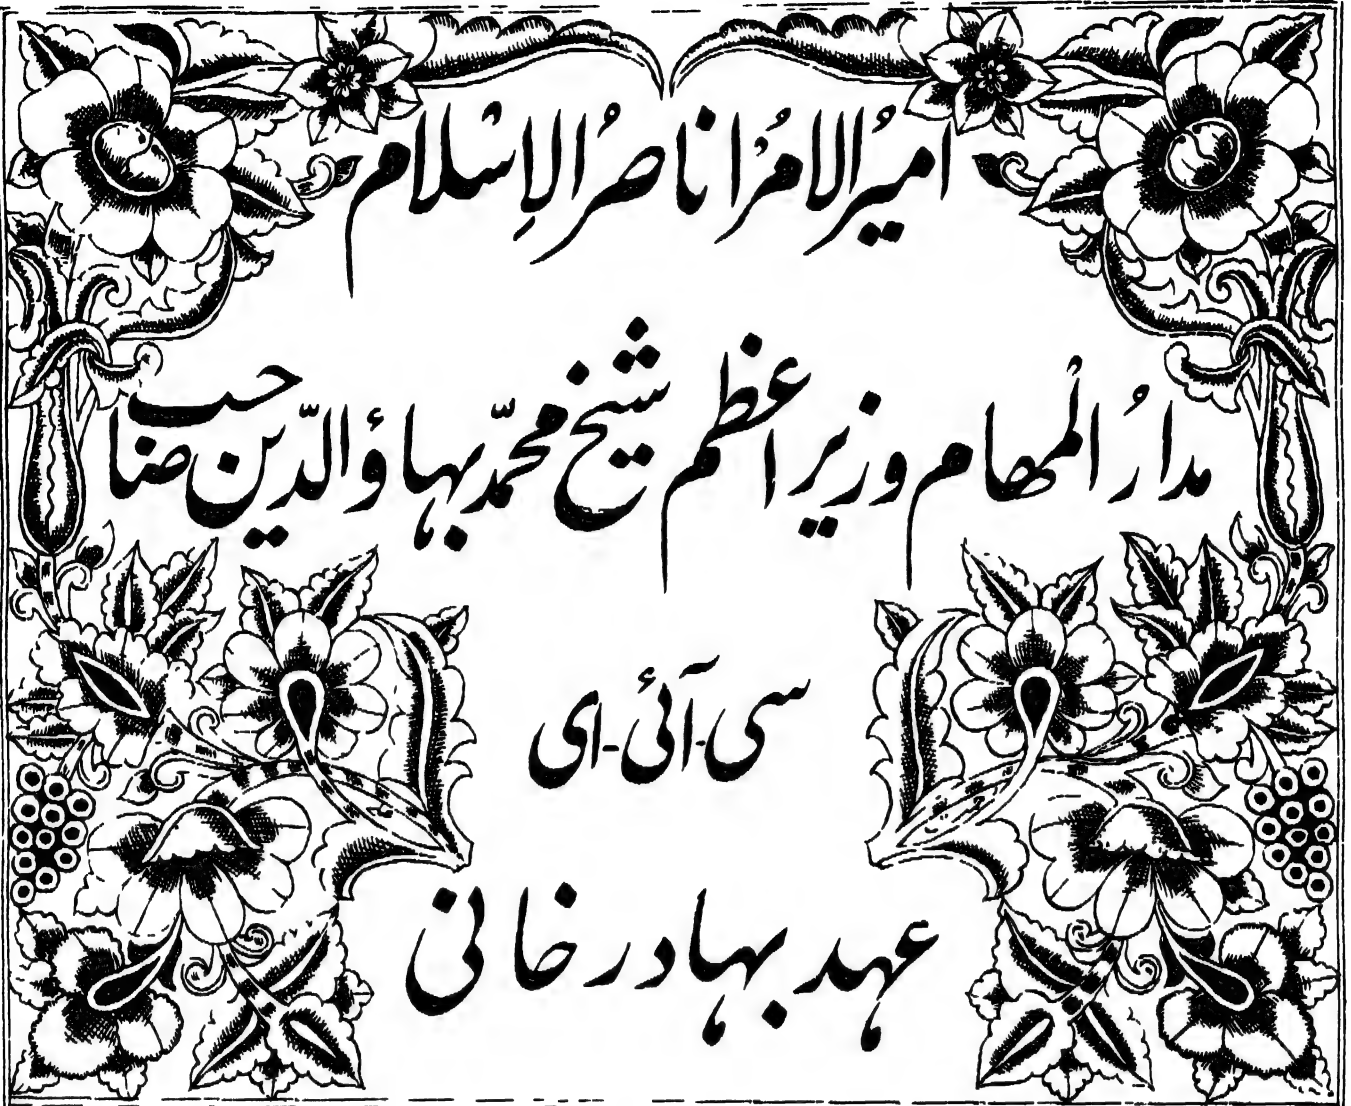 امیرُ الامُرْا ناصرُ الاِسْلام
مدارُ الْمھام وزیر اعظم شیخ محمّد بہاؤ الدّین صاحب
سی-آئی-ای
عہد بہادر خانی